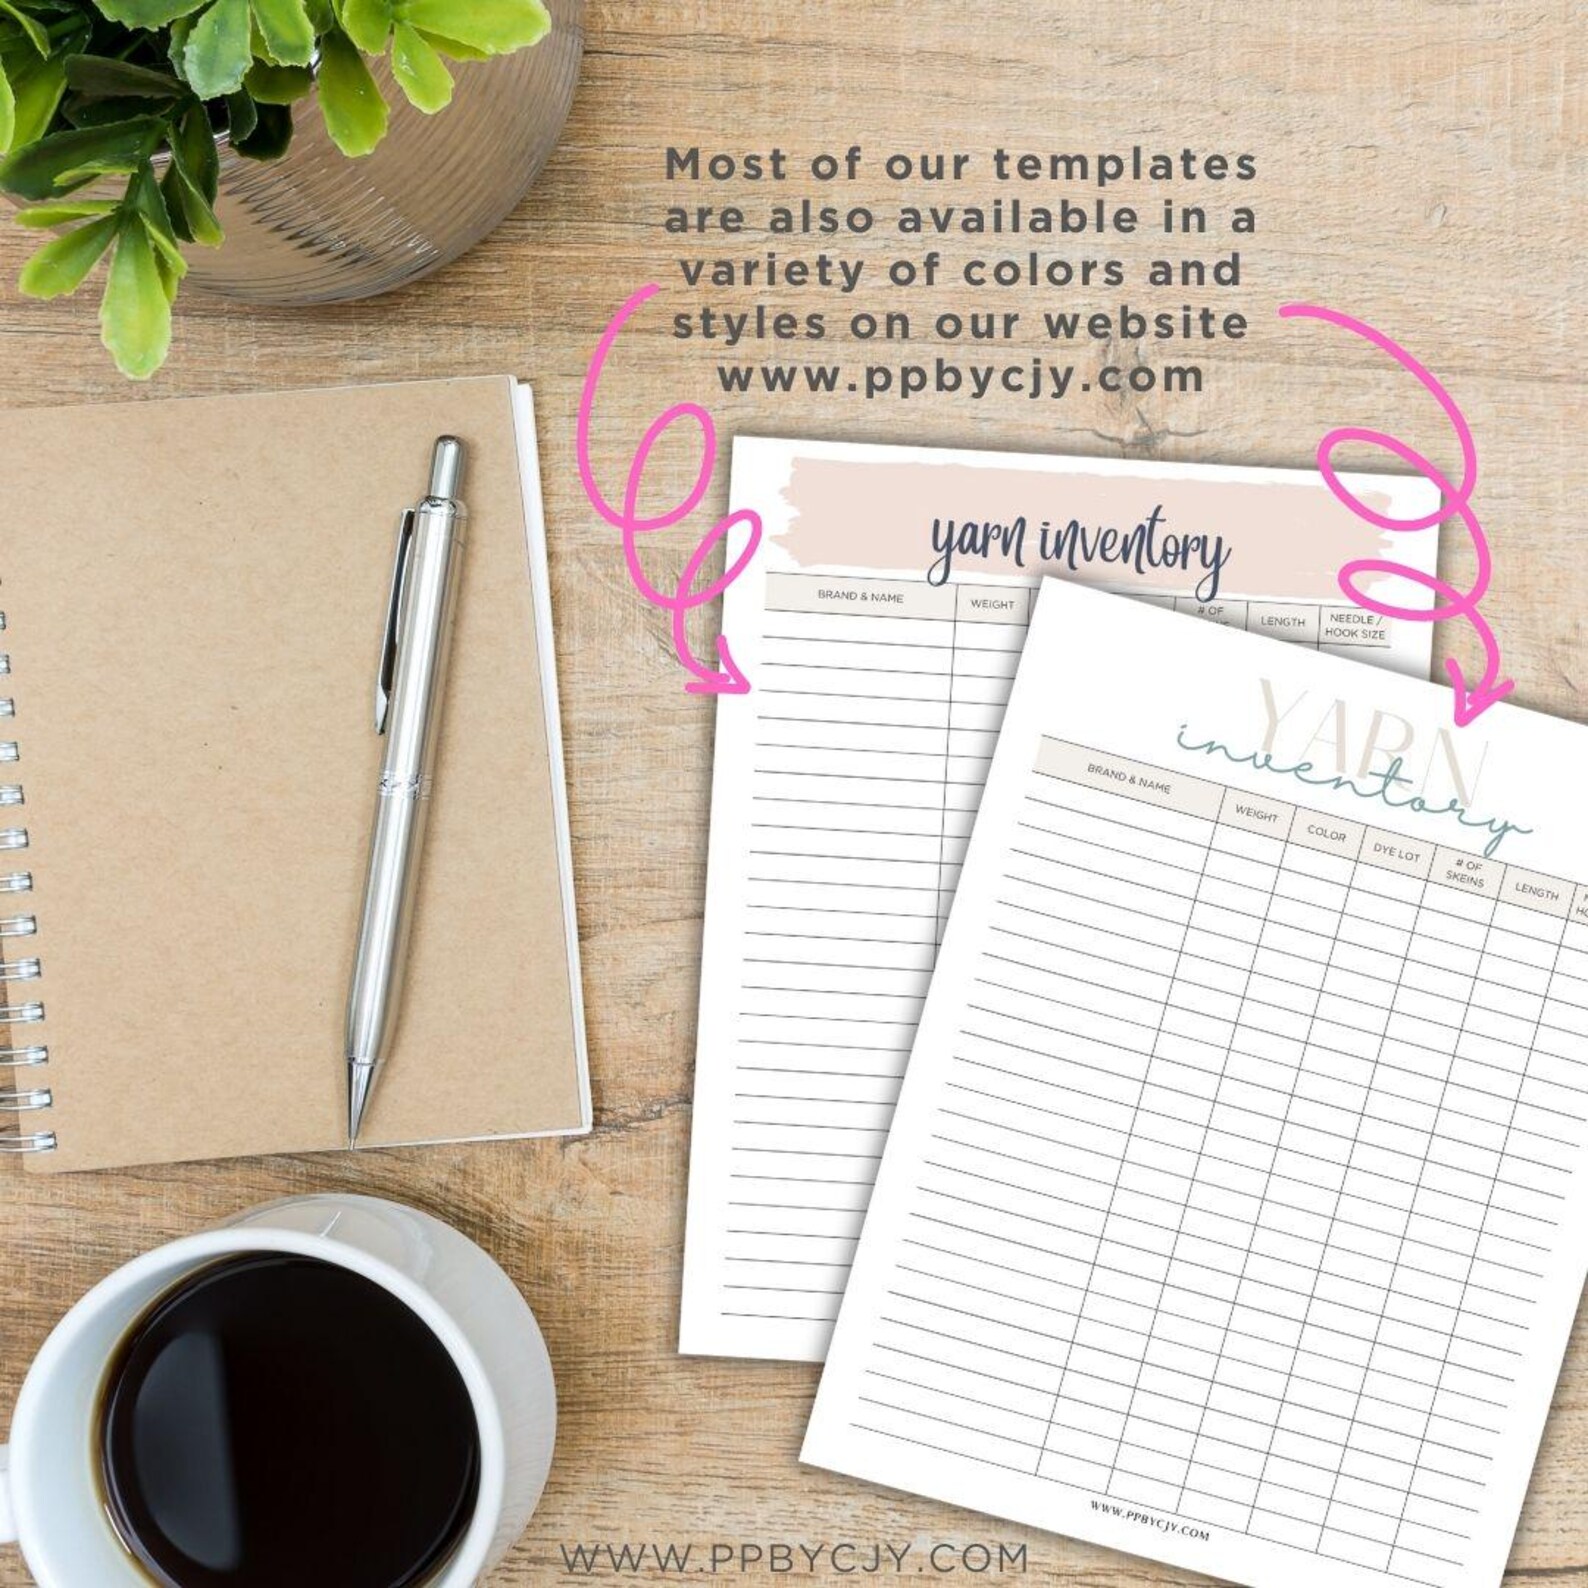 Most of our templates
are also available in a
variety of colors and
styles on our website
www.ppbycjy.com
yarn inventory
BRAND & NAME
WEIGHT
# OF
LENGTH
NEEDLE /
HOOK SIZE
YARN
inventory
BRAND & NAME
WEIGHT
COLOR
DYE LOT
# OF
SKEINS
LENGTH
WWW.PPBYCJY.COM
WWW.PPBYCJY.COM